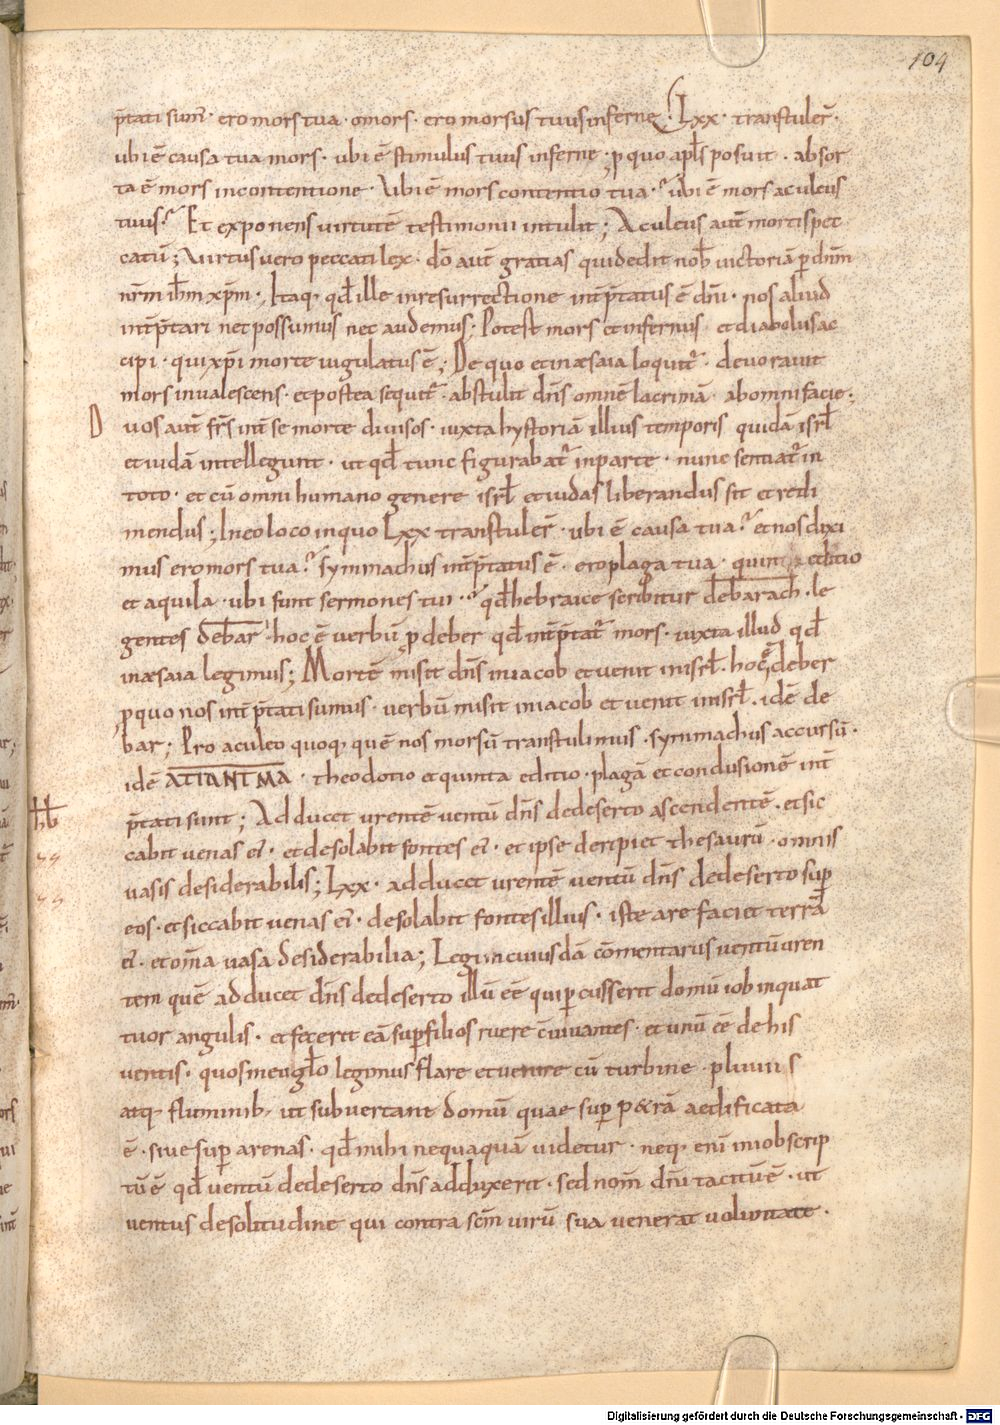 104
p̄tati sum̄· ero mors tua· o mors· ero morsus tuus inferne; Lxx· transtuler̄·
ubi ē causa tua mors· ubi ē stimulus tuus inferne; p quo apl̄s posuit· absor
ta ē mors in contentione· Ubi ē mors contentio tua·? ubi ē mors aculeus
tuus? Et exponens uirtutē testimonii intulit; Aculeus aut̄ mortis pec
catū; Uirtus uero peccati lex· dō aut̄ gratias qui dedit nob̄ uictoriā p dn̄m
nr̄m ih̄m xp̄m·; Itaq· qd̄ ille in resurrectione int̄p̄tatus ē dn̄i· nos aliud
int̄p̄tari nec possumus nec audemus; Potest mors et infernus et diabolus ac
cipi· qui xp̄i morte iugulatus ē; De quo et in æsaia loquit̄· deuorauit
mors inualescens· et postea sequit̄· abstulit dn̄s omnē lacrimā ab omni facie;
D
uos aut̄ fr̄s int̄ se morte diuisos· iuxta hystoriā illius temporis quidā isrl̄
et iudā intellegunt· ut qd̄ tunc figurabat̄ in parte· nunc sentiat̄ in
toto· et cū omni humano genere isrl̄ et iudas liberandus sit et redi
mendus; In eo loco in quo Lxx transtuler̄· ubi ē causa tua? et nos dixi
mus ero mors tua? symmachus int̄p̄tatus ē· ero plaga tua· quinta editio
et aquila· ubi sunt sermones tui·? qd̄ hebraice scribitur debarach· le
gentes debar· hoc ē uerbū p deber qd̄ int̄p̄tat̄ mors· iuxta illud qd̄
in æsaia legimus; Mortē misit dn̄s in iacob et uenit in isrl̄· hoc ē deber
p quo nos int̄p̄tati sumus· uerbū misit in iacob et uenit in isrl̄· idē de
bar; Pro aculeo quoq· quē nos morsū transtulimus· symmachus accursū·
idē ATIANTMA· theodotio et quinta editio· plagā et conclusionē int̄
hb̄
p̄tati sunt; Adducet urentē uentū dn̄s de deserto ascendentē· et sic
cabit uenas ei· et desolabit fontes ei· et ipse deripiet thesaurū· omnis
uasis desiderabilis; Lxx· adducet urentē uentū dn̄s de deserto sup
eos· et siccabit uenas ei· desolabit fontes illius· iste arefaciet terrā
ei· et om̄a uasa desiderabilia; Legi in cuiusdā cōmentariis uentū uren
tem quē adducet dn̄s de deserto illū eē qui pcusserit domū iob in quat
tuor angulis· et fecerit eā sup filios ruere cuiuantes· et unū eē de his
uentis· quos in eugl̄o legimus flare et uenire cū turbine· pluuiis
atq· fluminib· ut subuertant domū quae sup petrā aedificata
ē· siue sup arenas· qd̄ mihi nequaquā uidetur· neq· enī in iob scrip
tū ē qd̄ uentū de deserto dn̄s adduxerit· sed nom̄ dn̄i tacitū ē· ut
uentus de solitudine qui contra sc̄m uirū sua uenerat uoluntate·
Digitalisierung gefördert durch die Deutsche Forschungsgemeinschaft - DFG